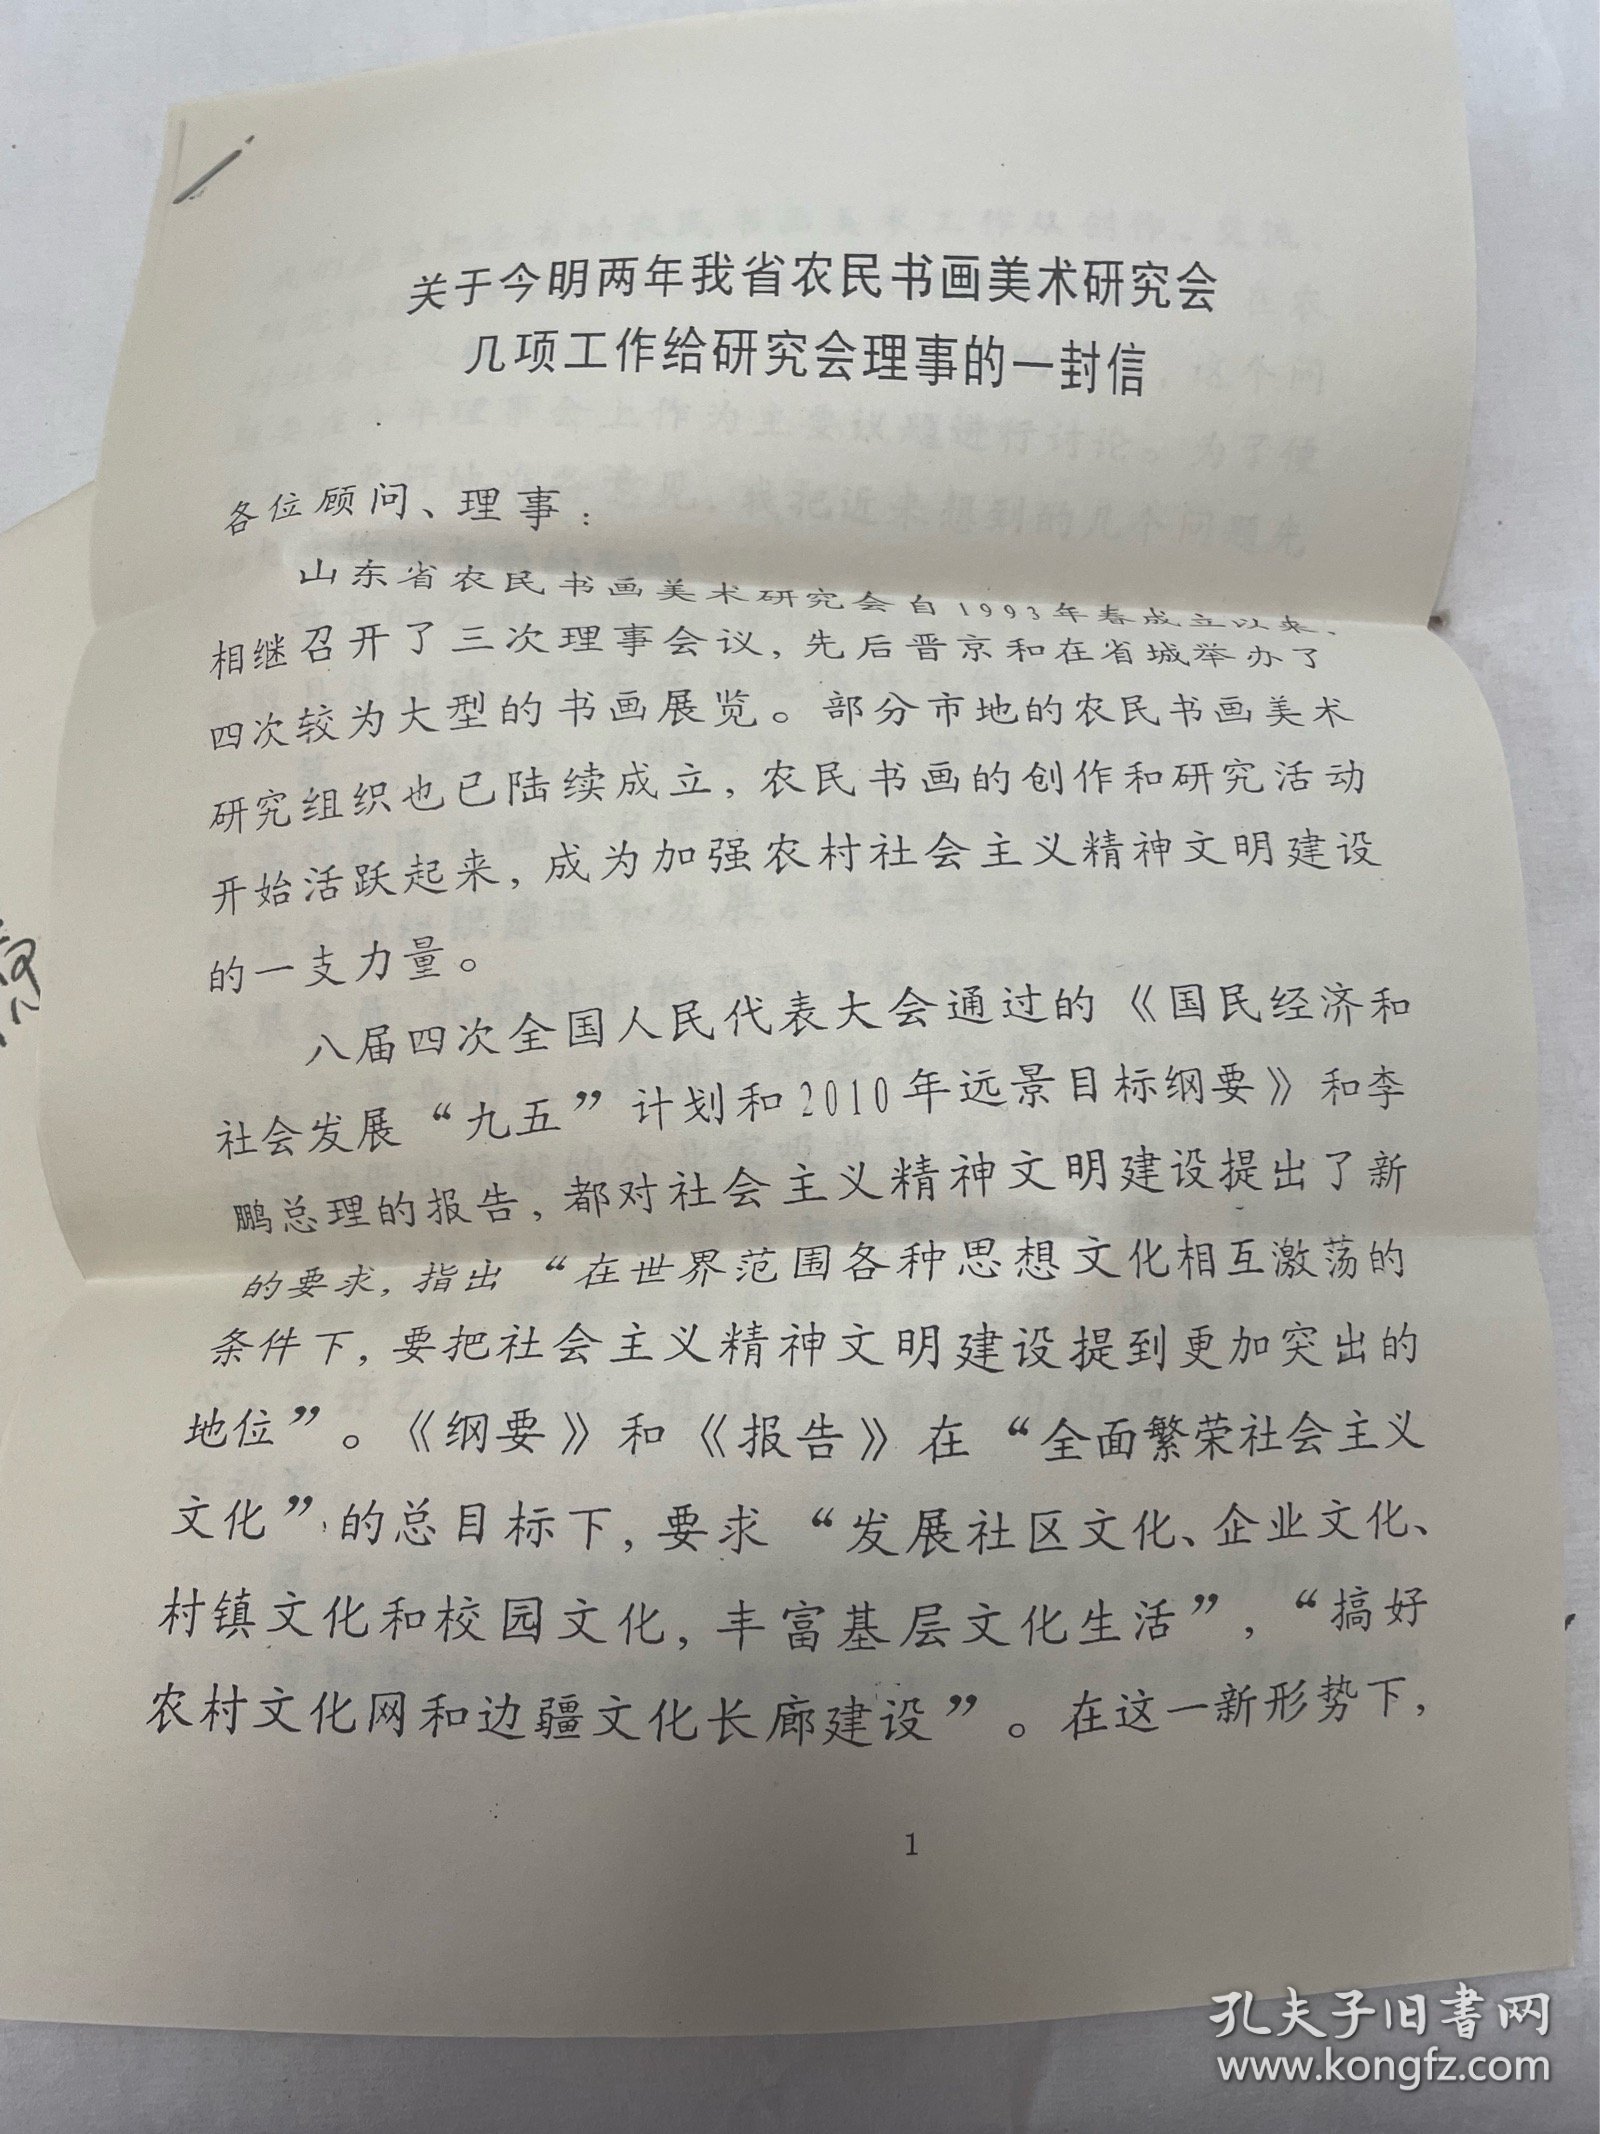 关于今明两年我省农民书画美术研究会
几项工作给研究会理事的一封信
各位顾问、理事：
山东省农民书画美术研究会自1993年春成立以来、
相继召开了三次理事会议，先后晋京和在省城举办了
四次较为大型的书画展览。部分市地的农民书画美术
研究组织也已陆续成立，农民书画的创作和研究活动
开始活跃起来，成为加强农村社会主义精神文明建设
的一支力量。
八届四次全国人民代表大会通过的《国民经济和
社会发展“九五”计划和2010年远景目标纲要》和李
鹏总理的报告，都对社会主义精神文明建设提出了新
的要求，指出“在世界范围各种思想文化相互激荡的
条件下，要把社会主义精神文明建设提到更加突出的
地位”。《纲要》和《报告》在“全面繁荣社会主义
文化”的总目标下，要求“发展社区文化、企业文化、
村镇文化和校园文化，丰富基层文化生活”，“搞好
农村文化网和边疆文化长廊建设”。在这一新形势下，
1
孔夫子旧书网
www.kongfz.com